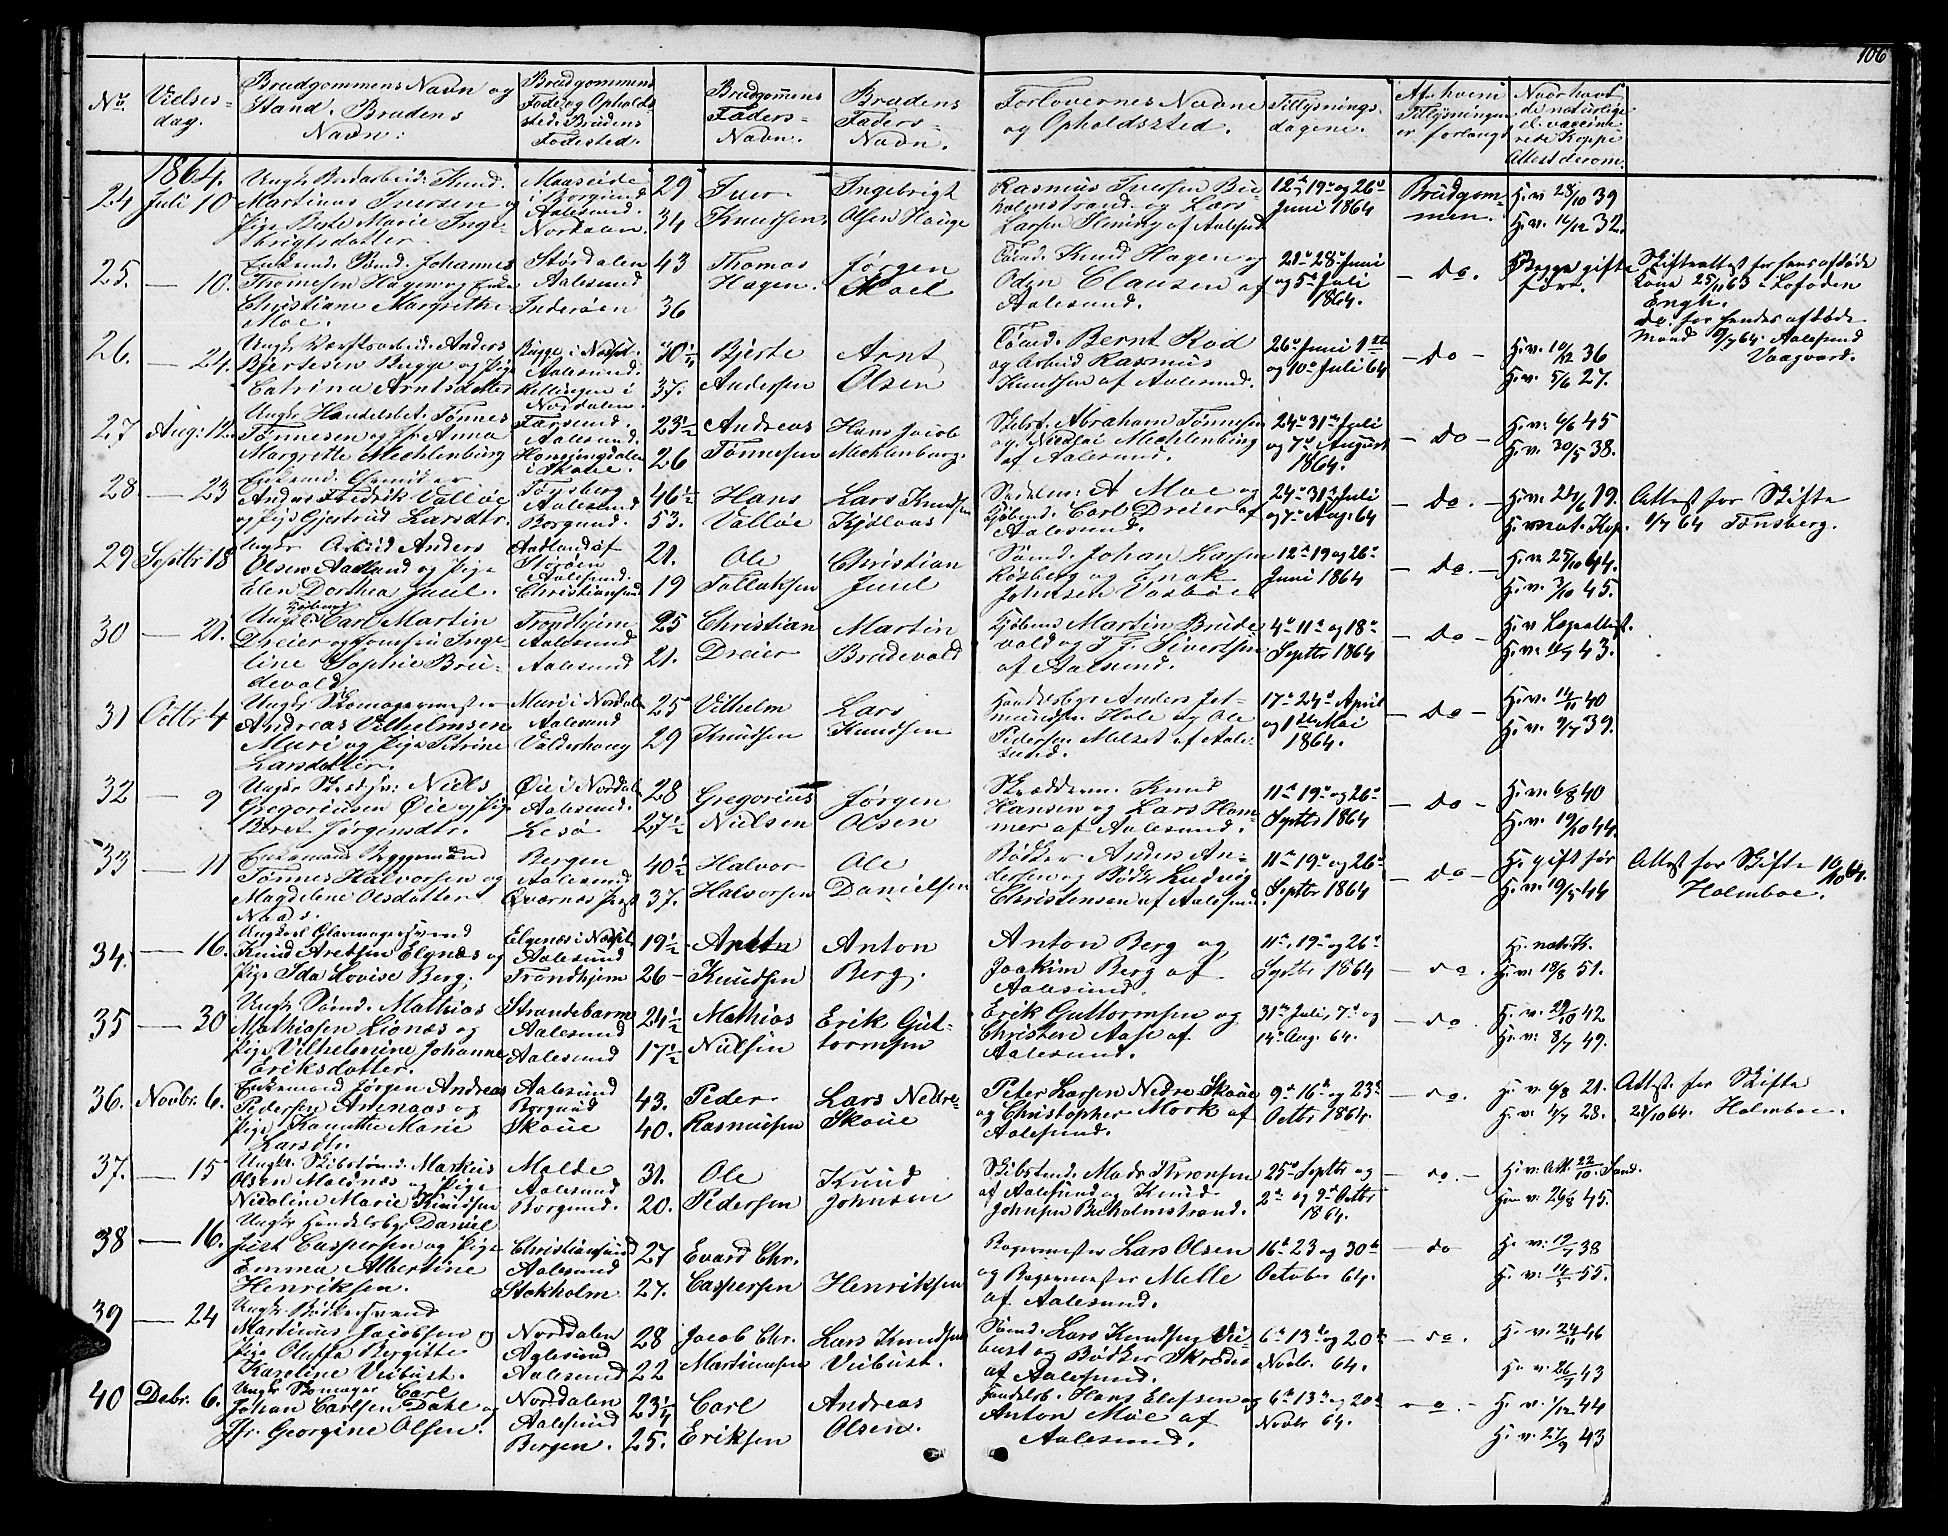 106
No. Vielses-dag. Brudgommens Navn og Stand. Brudens Navn: Brudgommens Fødeog Opholdssted. Brudens Fødested. Brudgommens Faders-Navn. Brudens Faders-Navn. Forlovernes Navne og Opholdssted. Tillysnings-dagene. Af hvem Tillysningen er forlangt Naar havt de naturlige el. vaccinerede Kopper Attest derom.
1864.
24 Juli 10 Martinus Iversen og Pige Berte Marie Ingebrigtsdatter Maaseide i Borgund Aalesund. Nordalen. 29 34 Iver Knudsen Ingebrigt Olsen Hauge Rasmus Iversen Buholmstrand og Lars Larsen Fleming af Aalesund 12te 19de og 26de Juni 1864 Brudgommen. H. v. 28/10 39 H. v. 16/12 32.
25. — 10. Johannes Thomesen Hagen og Enke Christiane Margrethe Moe. Stordalen Aalesund Inderøen 43 36 Thomas Hagen. Jørgen Moel Knud Hagen og Odin Clausen af Aalesund. 21de 28de Juni og 5te Juli 1864. — do. Begge gifte førr. Skifteattest for hans afdøde Kone 25/11 63 Lofoden Engh. do. for hendes afdøde Mand 9/7 64. Aalesund Vaagaard.
26. — 24. Anders Bjertesen Bugge og Pige Catrina Arntsdatter Bugge i Aalesund. Nordalen. 30½ 37. Bjerte Andersen Arnt Olsen Bernt Rød og Arbeid Rasmus Knudsen af Aalesund. 26de Juni og 10de Juli 64 — do — H. v. 10/12 36 H. v. 5/6 27.
27 Aug: 12. Ungk. Handelsbet. Tønnes Tønnesen og Jfr. Anna Margrethe Mechlenburg Farsund. Aalesund. i Skoue. 23½ 26 Andreas Tønnesen Hans Jacob Mechlenburg. Abraham Tønnesen og Nicolai Mechlenburg af Aalesund. 24de 31te Juli og 7de August 1864. — do — H. v. 6/6 45 H. v. 30/5 38.
28 — 23 Andreas Fredrik Valløe og Pige Gjertrud Larsdtr. Tønsberg Aalesund Borgund. 46½ 53. Hans Valløe Lars Knudsen Kjølaas A Moe og Carl Dreier af Aalesund. 24de 31te Juli og 7de Aug. 64 — do. — H. v. 24/6 19. H. v. nat. Kop. Attest for Skifte 1/7 64 Tønsberg.
29 Septbr 18 Ungk. Arbeid Anders Olsen Aadland og Pige Elen Dorthea Juul. Aadland af Størøen Aalesund. Christiansund 21. 19 Ole Tollaksen Christian Juul Sømd. Johan Larsen Rosberg og Enok Johnsen Vasbøe 12te 19 og 26de Juni 1864 — do. — H. v. 25/10 44. H. v. 3/10 45.
30 — 21. Ungk. Carl Martin Dreier og Jomfru Ingeline Sophie Brudevold Trondhjem Aalesund Aalesund 25 21. Christian Dreier Martin Brudevold Kjøbmd Martin Brudevold og T. J. Sivertsen af Aalesund. 4de 11te og 18de Septbr 1864 — do — H. v. H. v. 11/7 43.
31 Octbr 4 Ungk. Skomagermester Andreas Vilhelmsen Muri og Pige Petrine Larsdatter. Muri i Nordalen Aalesund Valderhaug 25 29 Vilhelm Knudsen Lars Knudsen Handelsbgr Anders Hole og Ole Pedersen Melset af Aalesund. 17de 24de April og 1ste Mai 1864. — do — H. v. 14/11 40 H. v. 9/7 39.
32 — 9 Niels Gregoriusen Øie og Pige Beret Jørgensdtr. Øie i Nordal Aalesund. Lesø 28 27½ Gregorius Nielsen Jørgen Olsen Skrædderm. Knud Hansen og Lars Hammer af Aalesund. 11te 19de og 26de Septbr 1864 — do — H. v. 6/8 40 H. v. 19/10 44.
33 — 11 Enkemand Byggemand Tønnes Halvorsen og Magdelene Olsdatter Naas. Bergen Aalesund Qværnæs 40½ 37. Halvor Halvorsen Ole Danielsen Bødker Anders Andersen og Bødk. Ludvig Christensen af Aalesund. 11te 19de og 26de Septbr 1864 — do — H. gift før H. v. 19/5 44 Attest for Skifte 10/10 64. Holmboe.
34. — 16. Knud Aretsen Elgnæs og Pige Ida Lovise Berg. Elgenæs i Aalesund Trondhjem 19½ 26 Knudsen Anton Berg. Anton Berg og Joakim Berg af Aalesund. 11te, 19de og 26de Septbr 1864 — do. H. nat. K. H. v. 18/8 51.
35 — 30 Ungk. Sømd. Mathias Mathiasen Lionæs og Pige Vilhelmine Johanne Eriksdatter. Strandebarm Aalesund Aalesund 24½ 17½ Mathias Nielsen Erik Guttormsen Erik Guttormsen og Christen Aase af Aalesund. 31te Juli, 7de og 14de Aug. 64. — do. H. v. 29/10 42 H. v. 8/7 49.
36. Novbr. 6. Enkemand Jørgen Andreas Pedersen Arenaas og Pige Marie Larsdtr. Aalesund Borgund Skoue 43. 40. Peder Rasmussen Lars Nedre-Skoue Peter Larsen Nedre Skoue og Christopher Mork af Aalesund. 9de 16de og 23de Octbr 1864. — do. H. v. 6/8 21. H. v. 4/7 28. Attest for Skifte 21/10 64. Holmboe.
37. — 15 Ungk. Skibstømd. Markus Olsen Malenæs og Pige Nicoline Marie Knudsen Molde Aalesund Borgund. 31. 20. Ole Pedersen Knud Johnsen Skibstmd. Mads Thronsen af Aalesund og Knud Johnsen Buholmstrand. 25de Septbr og 2de og 9de Octbr 1864. — do. — H. v. Att. 22/10. H. v. 26/8 45.
38 — 16. Ungk. Handelsbg. Daniel Just Caspersen og Pige Emma Albertine Henriksen. Christiansund Aalesund Stokholm 27 27. Evard Chr. Caspersen Henriksen Bagermester Lars Olsen og Bagermester Melle af Aalesund. 16de 23 og 30de October 64. — do H. v. 19/7 38 H. v. 14/5 55.
39 — 24 Ungk. Bødkersvend Martinus Jacobsen og Pige Oluffa Bergitte Karoline Viebust. Norddalen Aalesund Aalesund 28 22 Jacob Chr. Martinusen Lars Knudsen Viebust. Sømd. Lars Knudsen Viebust og Bødker af Aalesund. 6te 13de og 20de Novbr. 64. — do. H. v. 24/11 46 H. v. 26/9 43
40 Debr. 6. Ungk. Skomager Carl Johan Carlsen Dahl og Jfr. Georgine Olsen. Norddalen Aalesund Bergen. 23¼ 25. Carl Eriksen Andreas Olsen. Handelsb. Hans Elefsen og Anton Moe af Aalesund. 6te 13de og 20de Novbr 64. — do. — H. v. 1/12 44 H. v. 27/9 43